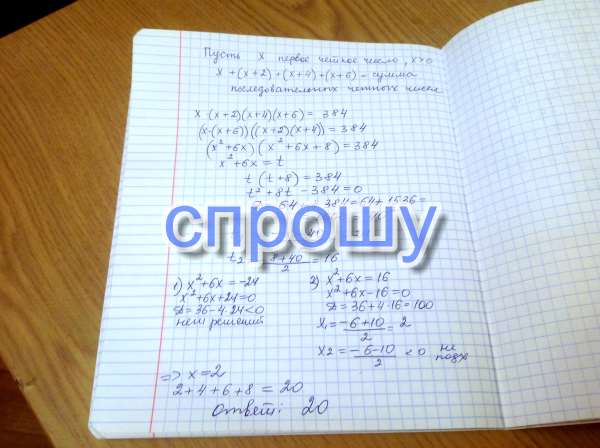 Пусть x первое четное число, x>0
x+(x+2)+(x+4)+(x+6) - сумма
последовательных четных чисел
x·(x+2)(x+4)(x+6)=384
(x·(x+6))((x+2)(x+4))=384
(x²+6x)(x²+6x+8)=384
x²+6x=t
t(t+8)=384
t²+8t-384=0
спрошу
t₂ = -8+40/2 = 16
1) x²+6x=-24
x²+6x+24=0
D=36-4·24<0
нет решений
2) x²+6x=16
x²+6x-16=0
D=36+4·16=100
x₁=-6+10/2=2
x2=-6-10/2<0 не подх
=> x=2
2+4+6+8=20
Ответ: 20